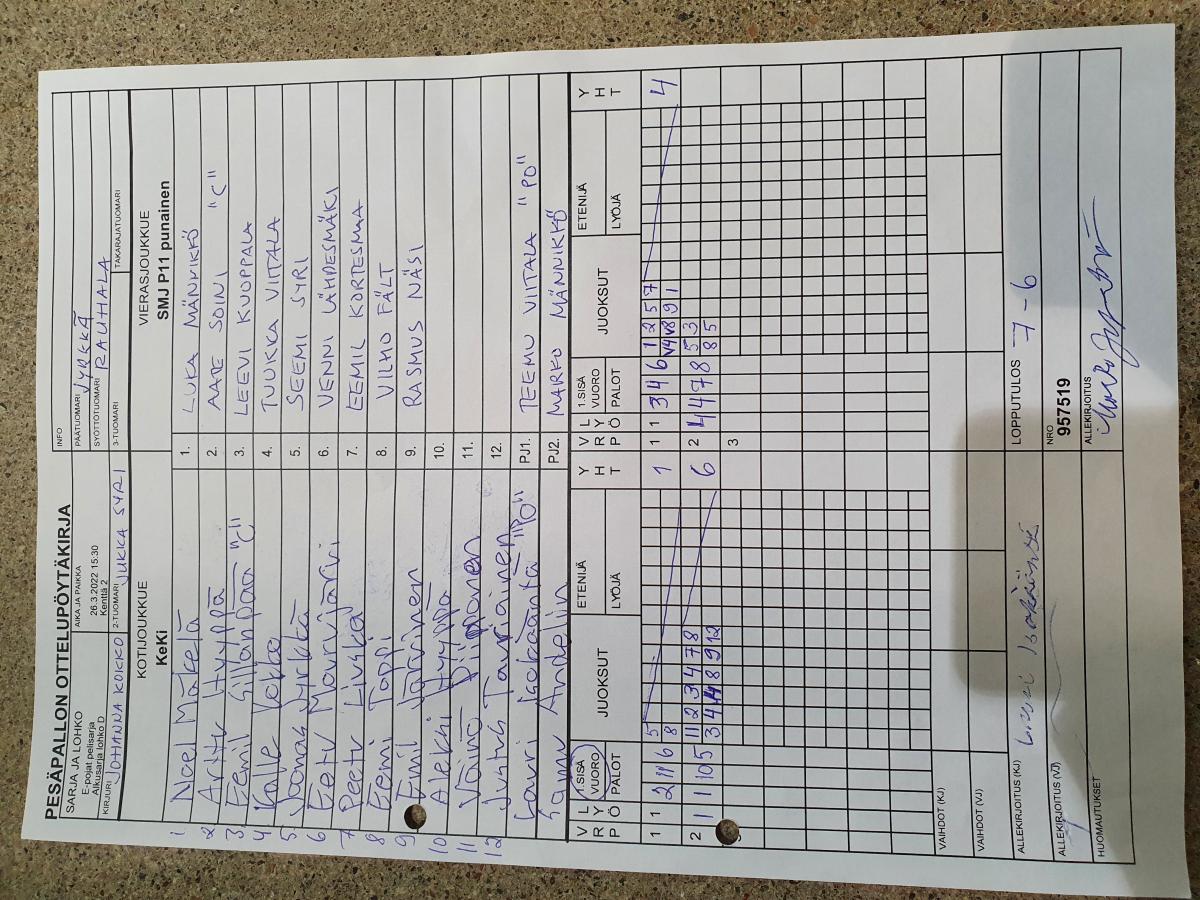 PESÄPALLON OTTELUPÖYTÄKIRJA
SARJA JA LOHKO
E-pojat pelisarja
Alkusarja lohko D
AIKA JA PAIKKA
26.3.2022 15:30
Kenttä 2
INFO
PÄÄTUOMARI JYRKKÄ
SYÖTTÖTUOMARI RAUHALA
KIRJURI JOHANNA KOKKO
2-TUOMARI JUKKA SYRI
3-TUOMARI
TAKARAJATUOMARI
KOTIJOUKKUE
KeKi
VIERASJOUKKUE
SMJ P11 punainen
1 Noel Mäkelä
1. LUKA MÄNNIKKÖ
2 Arttu Hyyppä
2. AATE SOINI "C"
3 Eemil Sillanpää "C"
3. LEEVI KUOPPALA
4 Kalle Kokko
4. TUUKKA VIITALA
5 Joonas Jyrkkä
5. SEEMI SYRI
6 Eetu Mourujärvi
6. VENNI LÄHDESMÄKI
7 Peetu Livskä
7. EEMIL KORTESMAA
8 Eemi Toppi
8. VILHO FÄLT
9 Emil Järvinen
9. RASMUS NÄSI
10 Aleksi Hyyppä
10.
11 Väinö Piipponen
11.
12 Justus Tauriainen
12.
Lauri Isokääntä "PO"
PJ1. TEEMU VIITALA "PO"
Sami Andelin
PJ2. MARKO MÄNNIKKÖ
V P L
R Y Ö
1.SISÄ
VUORO
PALOT
JUOKSUT
ETENIJÄ
LYÖJÄ
Y H T
V P L
R Y Ö
1.SISÄ
VUORO
PALOT
JUOKSUT
ETENIJÄ
LYÖJÄ
Y H T
1 1 2 11 6 5 1
8
1 1 3 4 6 1 2 5 7 4
V4 V8 9 1
2 1 1 10 5 11 2 3 4 7 8 6
2 4 4 7 8 5 3
8 5
3
VAIHDOT (KJ)
VAIHDOT (VJ)
ALLEKIRJOITUS (KJ)
LOPPUTULOS 7-6
ALLEKIRJOITUS (VJ)
NRO
957519
HUOMAUTUKSET
ALLEKIRJOITUS